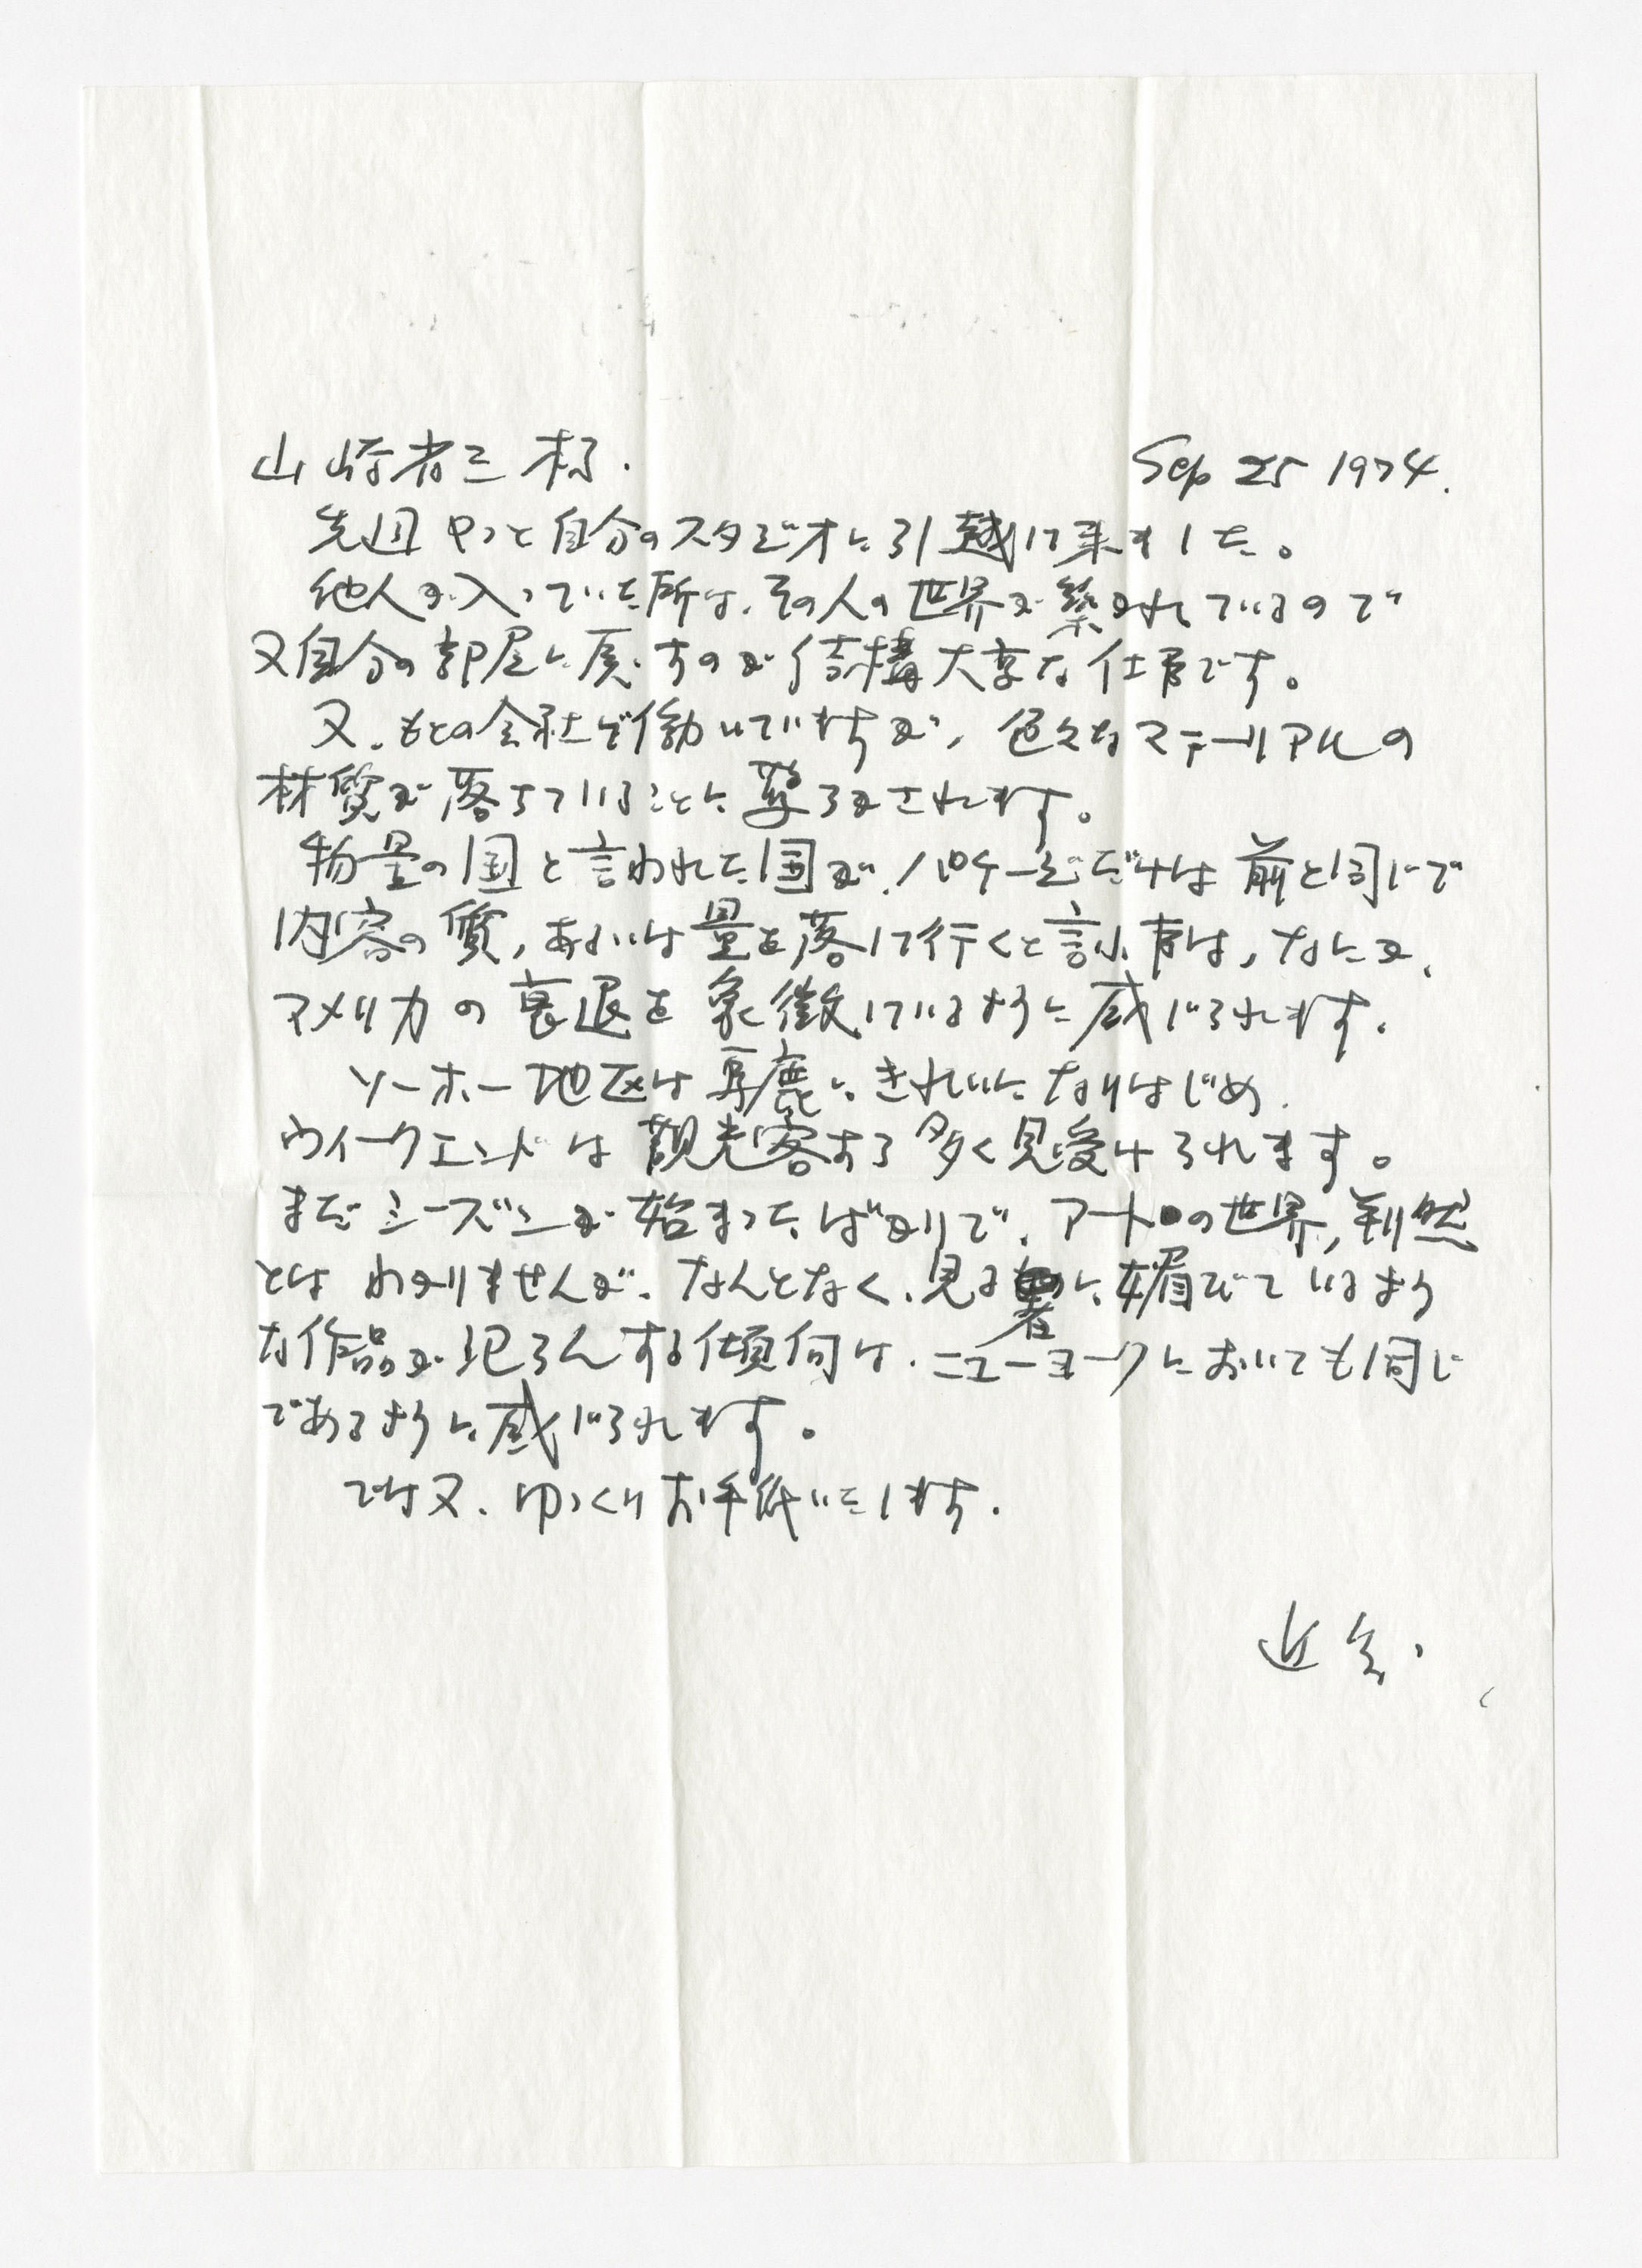 山崎省三様. Sep 25 1974.
先週やっと自分のスタジオに引越して来ました。
他人が入っていた所は、その人の世界が築かれているので
又自分の部屋に戻すのが結構大変な仕事です。
又、もとの会社で働いていますが、色々なマテーリアルの
材質が落ちていることに驚ろかされます。
物量の国と言われた国が、パケージだけは前と同じで
内容の質,あるいは量を落して行くと言ふ事は,なにか、
アメリカの衰退を象徴しているように感じられます.
ソーホー地区は、きれいになりはじめ、
ウイークエンドは観光客すら多く見受けられます。
まだシーズンが始まったばかりで、アートの世界,判然
とはわかりませんが、なんとなく、見る者に媚びているよう
な作品が氾らんする傾向は、ニューヨークにおいても同じ
であるように感じられます。
では又、ゆっくりお手紙いたします.
近